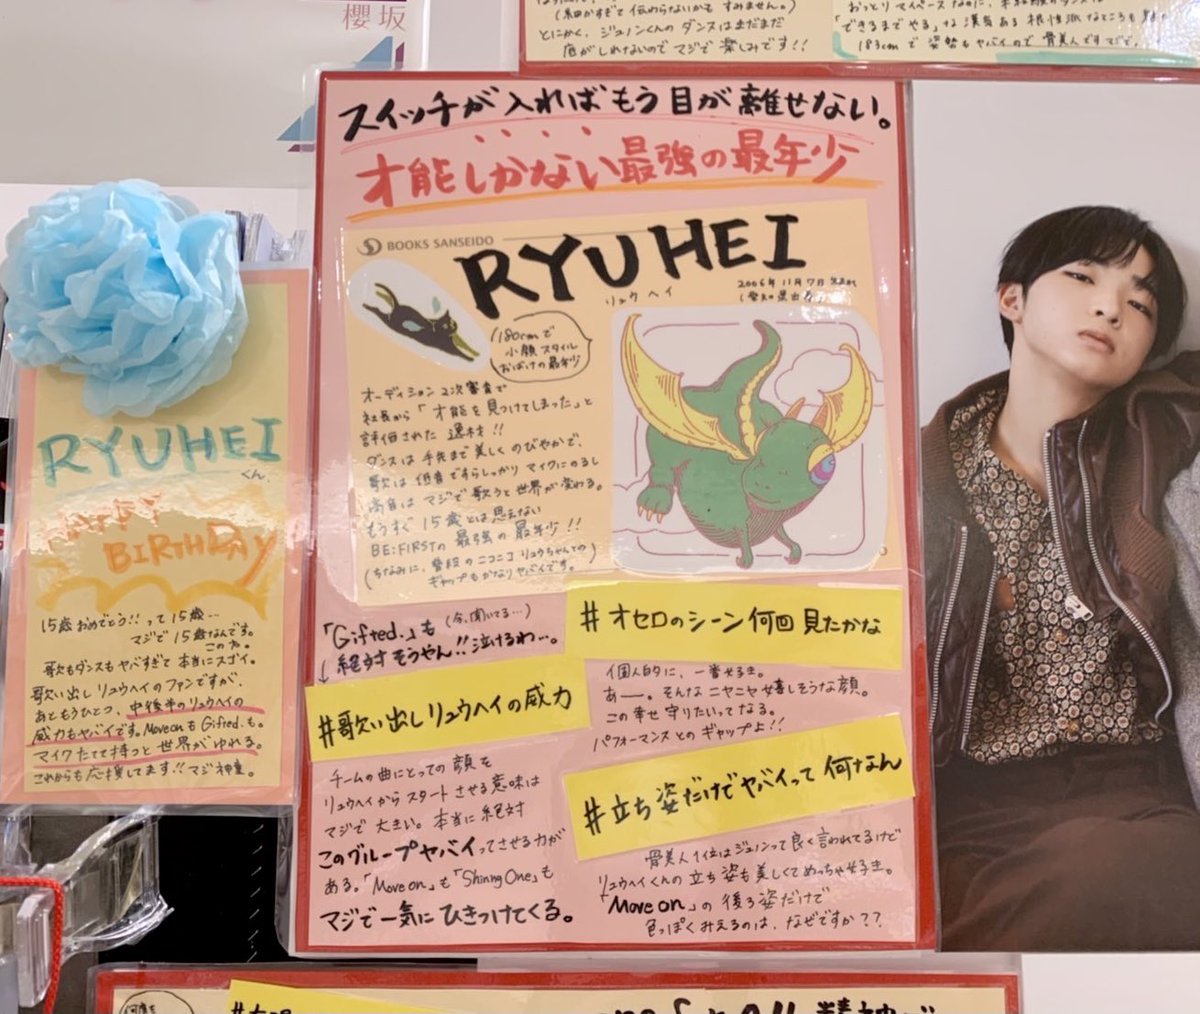 櫻坂
(細かすぎて伝わらないかも すみません。)
とにかく、ジュノンくんのダンスはまだまだ
底がしれないのでマジで楽しみです!!
「できるまでやる」な漢気ある 根性派なところも
183cmで 姿勢もヤバイので 骨美人ですマジで。
スイッチが入ればもう目が離せない。
才能しかない最強の最年少
BOOKS SANSEIDO
RYUHEI
リュウヘイ
2006年11月7日生まれ
180cmで
小顔スタイル
おばけの最年少
オーディション2次審査で
社長から「才能を見つけてしまった」と
評価された逸材!!
ダンスは手先まで美しくのびやかで、
歌は低音ですらしっかりマイクにのるし
高音はマジで歌うと世界が変わる。
もうすぐ15歳とは思えない
BE:FIRSTの最強の最年少!!
(ちなみに、普段のニコニコリュウちゃんとの
ギャップもかなりヤバイです。)
「Gifted.」も(今、聞いてる…)
絶対そうやん!!泣けるわ…。
#歌い出しリュウヘイの威力
チームの曲にとっての顔を
リュウヘイからスタートさせる意味は
マジで大きい。本当に絶対
このグループヤバイってさせる力が
ある。「Move on」も「Shining One」も
マジで一気にひきつけてくる。
#オセロのシーン何回見たかな
個人的に、一番好き。
あー。そんなニヤニヤ嬉しそうな顔。
この幸せ守りたいってなる。
パフォーマンスとのギャップよ!!
#立ち姿だけでヤバイって何なん
骨美人1位はジュノンって良く言われてるけど
リュウヘイくんの立ち姿も美しくてめっちゃ好き。
「Move on」の後ろ姿だけで
色っぽくみえるのは、なぜですか??
RYUHEI
くん
HAPPY
BIRTHDAY
15歳おめでとう!!って15歳…
マジで15歳なんです。
この方。
歌もダンスもヤバすぎて本当にスゴイ。
歌い出しリュウヘイのファンですが、
あともうひとつ、中後半のリュウヘイの
威力もヤバイです。Move onもGifted.も。
マイクたてて持つと世界がゆれる。
これからも応援してます!!マジ神童。